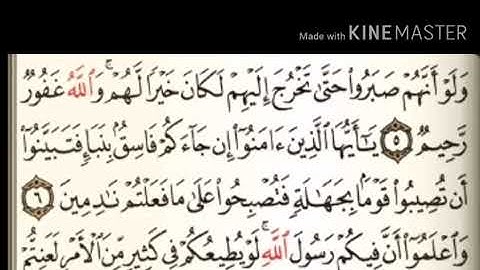 Made with KINEMASTER
وَلَوْ أَنَّهُمْ صَبَرُوا۟ حَتَّىٰ تَخْرُجَ إِلَيْهِمْ لَكَانَ خَيْرًا لَّهُمْ ۚ وَٱللَّهُ غَفُورٌ
رَّحِيمٌ ٥ يَـٰٓأَيُّهَا ٱلَّذِينَ ءَامَنُوٓا۟ إِن جَآءَكُمْ فَاسِقٌۢ بِنَبَإٍ فَتَبَيَّنُوٓا۟
أَن تُصِيبُوا۟ قَوْمًۢا بِجَهَـٰلَةٍ فَتُصْبِحُوا۟ عَلَىٰ مَا فَعَلْتُمْ نَـٰدِمِينَ ٦
وَٱعْلَمُوٓا۟ أَنَّ فِيكُمْ رَسُولَ ٱللَّهِ ۚ لَوْ يُطِيعُكُمْ فِى كَثِيرٍ مِّنَ ٱلْأَمْرِ لَعَنِتُّمْ